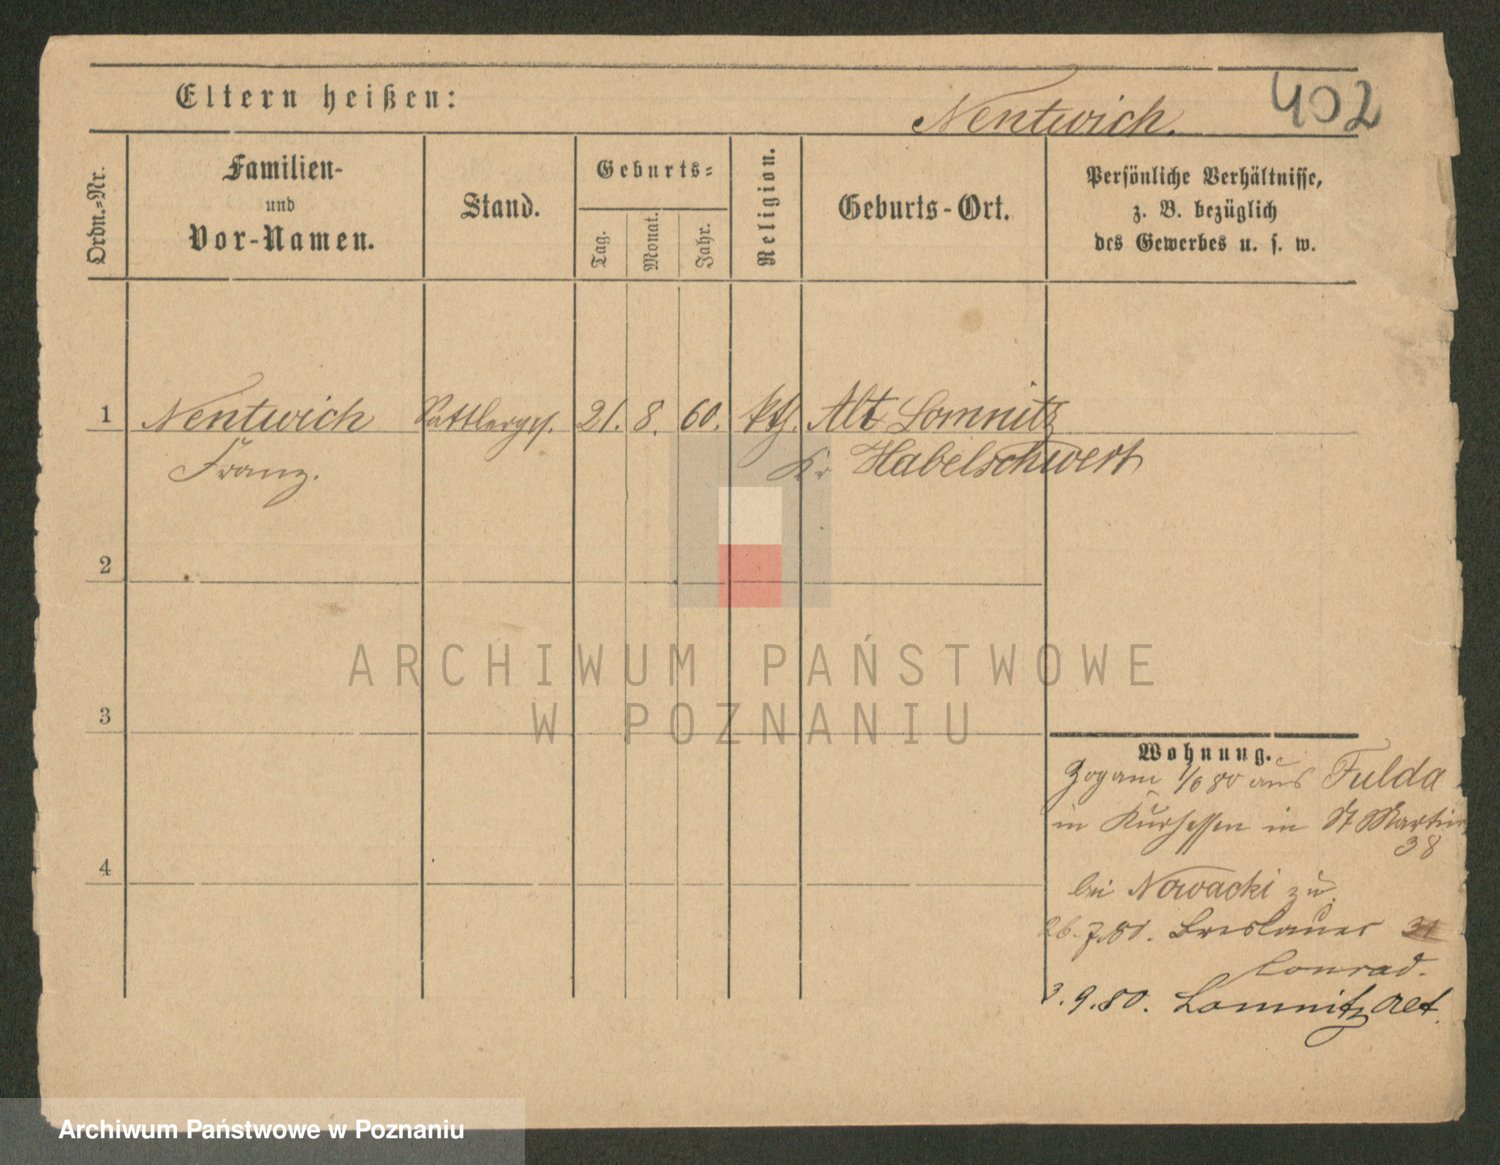 Eltern heißen:
Nentwich.
402
Ordn.-Nr.
Familien-
und
Vor-Namen.
Stand.
Geburts-
Tag.
Monat.
Jahr.
Religion.
Geburts-Ort.
Persönliche Verhältnisse,
z. B. bezüglich
des Gewerbes u. s. w.
1 Nentwich Sattlerges. 21. 8. 60. kth. Alt Lomnitz
Franz. Kr Habelschwert
2
3
4
Wohnung.
Zog am 1/6 80 aus Fulda
in Kurhessen in St Martin
38
bei Nowacki zu.
26.7.80. Breslauer 31
Conrad.
3.9.80. Lomnitz Alt.
ARCHIWUM PAŃSTWOWE
W POZNANIU
Archiwum Państwowe w Poznaniu